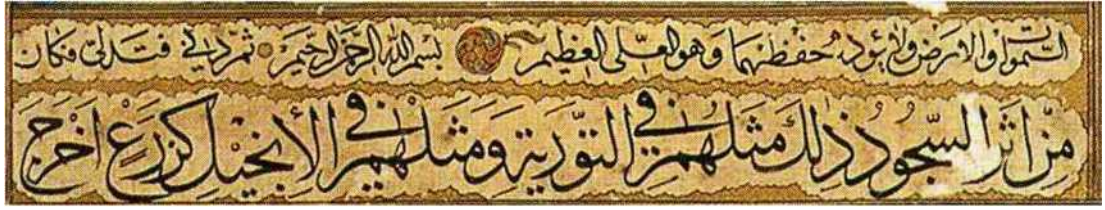 السموات والارض ولا يؤده حفظهما وهو العلى العظيم بسم الله الرحمن الرحيم ثم دنى فتدلى فكان
من اثر السجود ذلك مثلهم فى التورية ومثلهم فى الانجيل كزرع اخرج